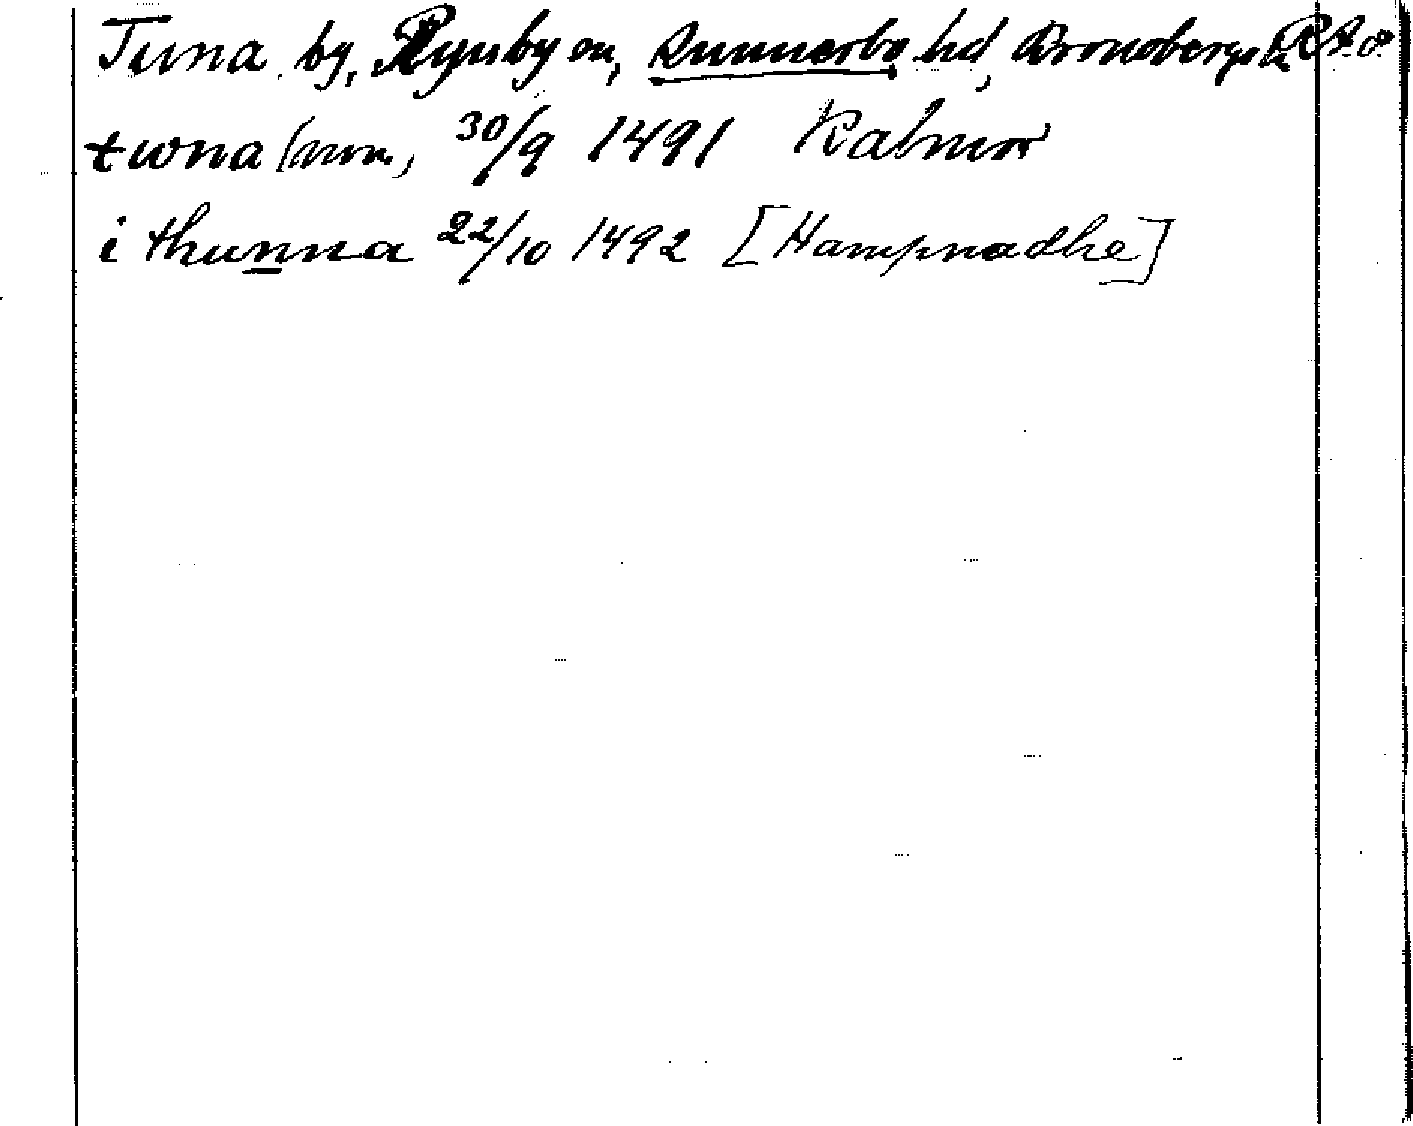 Tuna by, Ryssby sn, Sunnerbo hd, Kronobergs l. RA. o.
twna (nom.) 30/9 1491 Kalmar
i thunna 22/10 1492 [Hampnadhe]